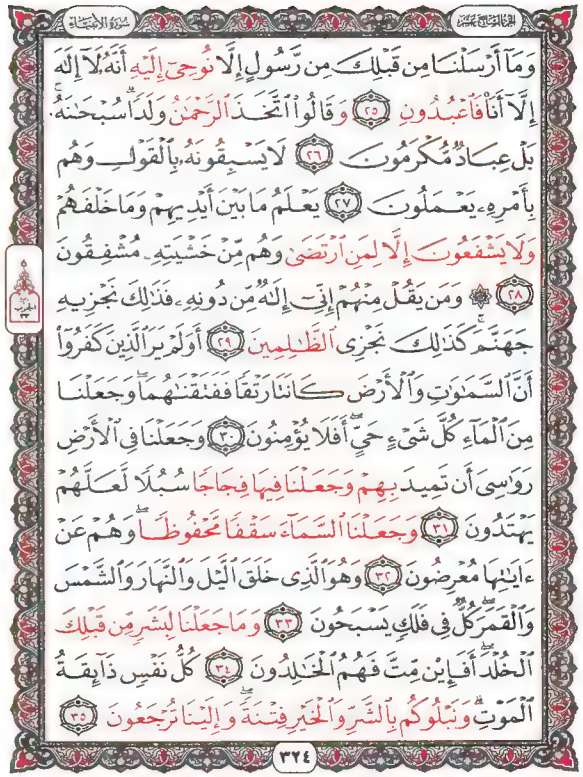 الجزء السابع عشر
سورة الأنبياء
وَمَآ أَرۡسَلۡنَا مِن قَبۡلِكَ مِن رَّسُولٍ إِلَّا نُوحِيٓ إِلَيۡهِ أَنَّهُۥ لَآ إِلَٰهَ
إِلَّآ أَنَا۠ فَٱعۡبُدُونِ ٢٥ وَقَالُواْ ٱتَّخَذَ ٱلرَّحۡمَٰنُ وَلَدٗاۗ سُبۡحَٰنَهُۥۚ
بَلۡ عِبَادٞ مُّكۡرَمُونَ ٢٦ لَا يَسۡبِقُونَهُۥ بِٱلۡقَوۡلِ وَهُم
بِأَمۡرِهِۦ يَعۡمَلُونَ ٢٧ يَعۡلَمُ مَا بَيۡنَ أَيۡدِيهِمۡ وَمَا خَلۡفَهُمۡ
وَلَا يَشۡفَعُونَ إِلَّا لِمَنِ ٱرۡتَضَىٰ وَهُم مِّنۡ خَشۡيَتِهِۦ مُشۡفِقُونَ
٢٨ ۞ وَمَن يَقُلۡ مِنۡهُمۡ إِنِّيٓ إِلَٰهٞ مِّن دُونِهِۦ فَذَٰلِكَ نَجۡزِيهِ
جَهَنَّمَۚ كَذَٰلِكَ نَجۡزِي ٱلظَّٰلِمِينَ ٢٩ أَوَلَمۡ يَرَ ٱلَّذِينَ كَفَرُوٓاْ
أَنَّ ٱلسَّمَٰوَٰتِ وَٱلۡأَرۡضَ كَانَتَا رَتۡقٗا فَفَتَقۡنَٰهُمَاۖ وَجَعَلۡنَا
مِنَ ٱلۡمَآءِ كُلَّ شَيۡءٍ حَيٍّۖ أَفَلَا يُؤۡمِنُونَ ٣٠ وَجَعَلۡنَا فِي ٱلۡأَرۡضِ
رَوَٰسِيَ أَن تَمِيدَ بِهِمۡ وَجَعَلۡنَا فِيهَا فِجَاجٗا سُبُلٗا لَّعَلَّهُمۡ
يَهۡتَدُونَ ٣١ وَجَعَلۡنَا ٱلسَّمَآءَ سَقۡفٗا مَّحۡفُوظٗاۖ وَهُمۡ عَنۡ
ءَايَٰتِهَا مُعۡرِضُونَ ٣٢ وَهُوَ ٱلَّذِي خَلَقَ ٱلَّيۡلَ وَٱلنَّهَارَ وَٱلشَّمۡسَ
وَٱلۡقَمَرَۖ كُلّٞ فِي فَلَكٖ يَسۡبَحُونَ ٣٣ وَمَا جَعَلۡنَا لِبَشَرٖ مِّن قَبۡلِكَ
ٱلۡخُلۡدَۖ أَفَإِيْن مِّتَّ فَهُمُ ٱلۡخَٰلِدُونَ ٣٤ كُلُّ نَفۡسٖ ذَآئِقَةُ
ٱلۡمَوۡتِۗ وَنَبۡلُوكُم بِٱلشَّرِّ وَٱلۡخَيۡرِ فِتۡنَةٗۖ وَإِلَيۡنَا تُرۡجَعُونَ ٣٥
٣٢٤